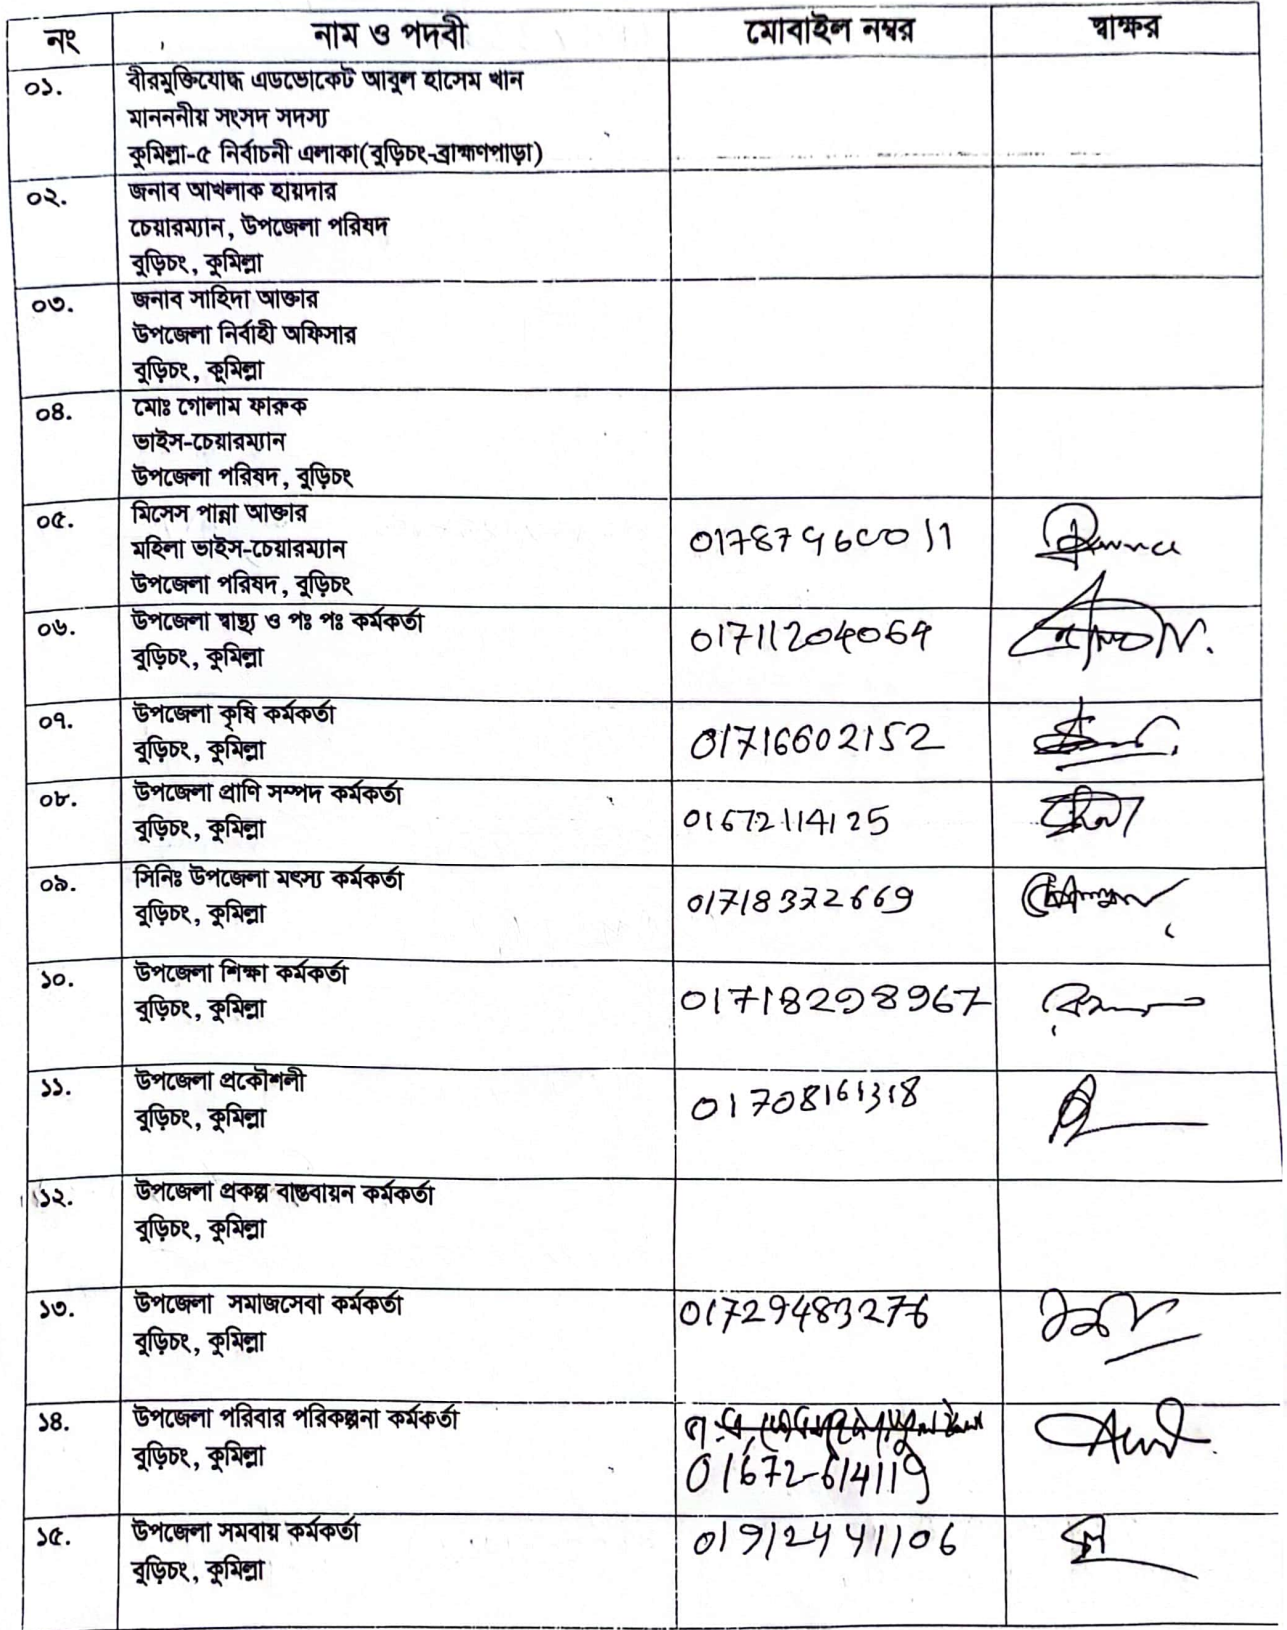 নং নাম ও পদবী মোবাইল নম্বর স্বাক্ষর
০১. বীরমুক্তিযোদ্ধ এডভোকেট আবুল হাসেম খান
মানননীয় সংসদ সদস্য
কুমিল্লা-৫ নির্বাচনী এলাকা(বুড়িচং-ব্রাহ্মণপাড়া)
০২. জনাব আখলাক হায়দার
চেয়ারম্যান, উপজেলা পরিষদ
বুড়িচং, কুমিল্লা
০৩. জনাব সাহিদা আক্তার
উপজেলা নির্বাহী অফিসার
বুড়িচং, কুমিল্লা
০৪. মোঃ গোলাম ফারুক
ভাইস-চেয়ারম্যান
উপজেলা পরিষদ, বুড়িচং
০৫. মিসেস পান্না আক্তার
মহিলা ভাইস-চেয়ারম্যান 01787960011
উপজেলা পরিষদ, বুড়িচং
০৬. উপজেলা স্বাস্থ্য ও পঃ পঃ কর্মকর্তা 01711204064
বুড়িচং, কুমিল্লা
০৭. উপজেলা কৃষি কর্মকর্তা
বুড়িচং, কুমিল্লা 01716602152
০৮. উপজেলা প্রাণি সম্পদ কর্মকর্তা
বুড়িচং, কুমিল্লা 01672114125
০৯. সিনিঃ উপজেলা মৎস্য কর্মকর্তা
বুড়িচং, কুমিল্লা 01718322669
১০. উপজেলা শিক্ষা কর্মকর্তা
বুড়িচং, কুমিল্লা 01718298967
১১. উপজেলা প্রকৌশলী
বুড়িচং, কুমিল্লা 01708161318
১২. উপজেলা প্রকল্প বাস্তবায়ন কর্মকর্তা
বুড়িচং, কুমিল্লা
১৩. উপজেলা সমাজসেবা কর্মকর্তা 01729483276
বুড়িচং, কুমিল্লা
১৪. উপজেলা পরিবার পরিকল্পনা কর্মকর্তা
বুড়িচং, কুমিল্লা 01672-614119
১৫. উপজেলা সমবায় কর্মকর্তা 01912441106
বুড়িচং, কুমিল্লা